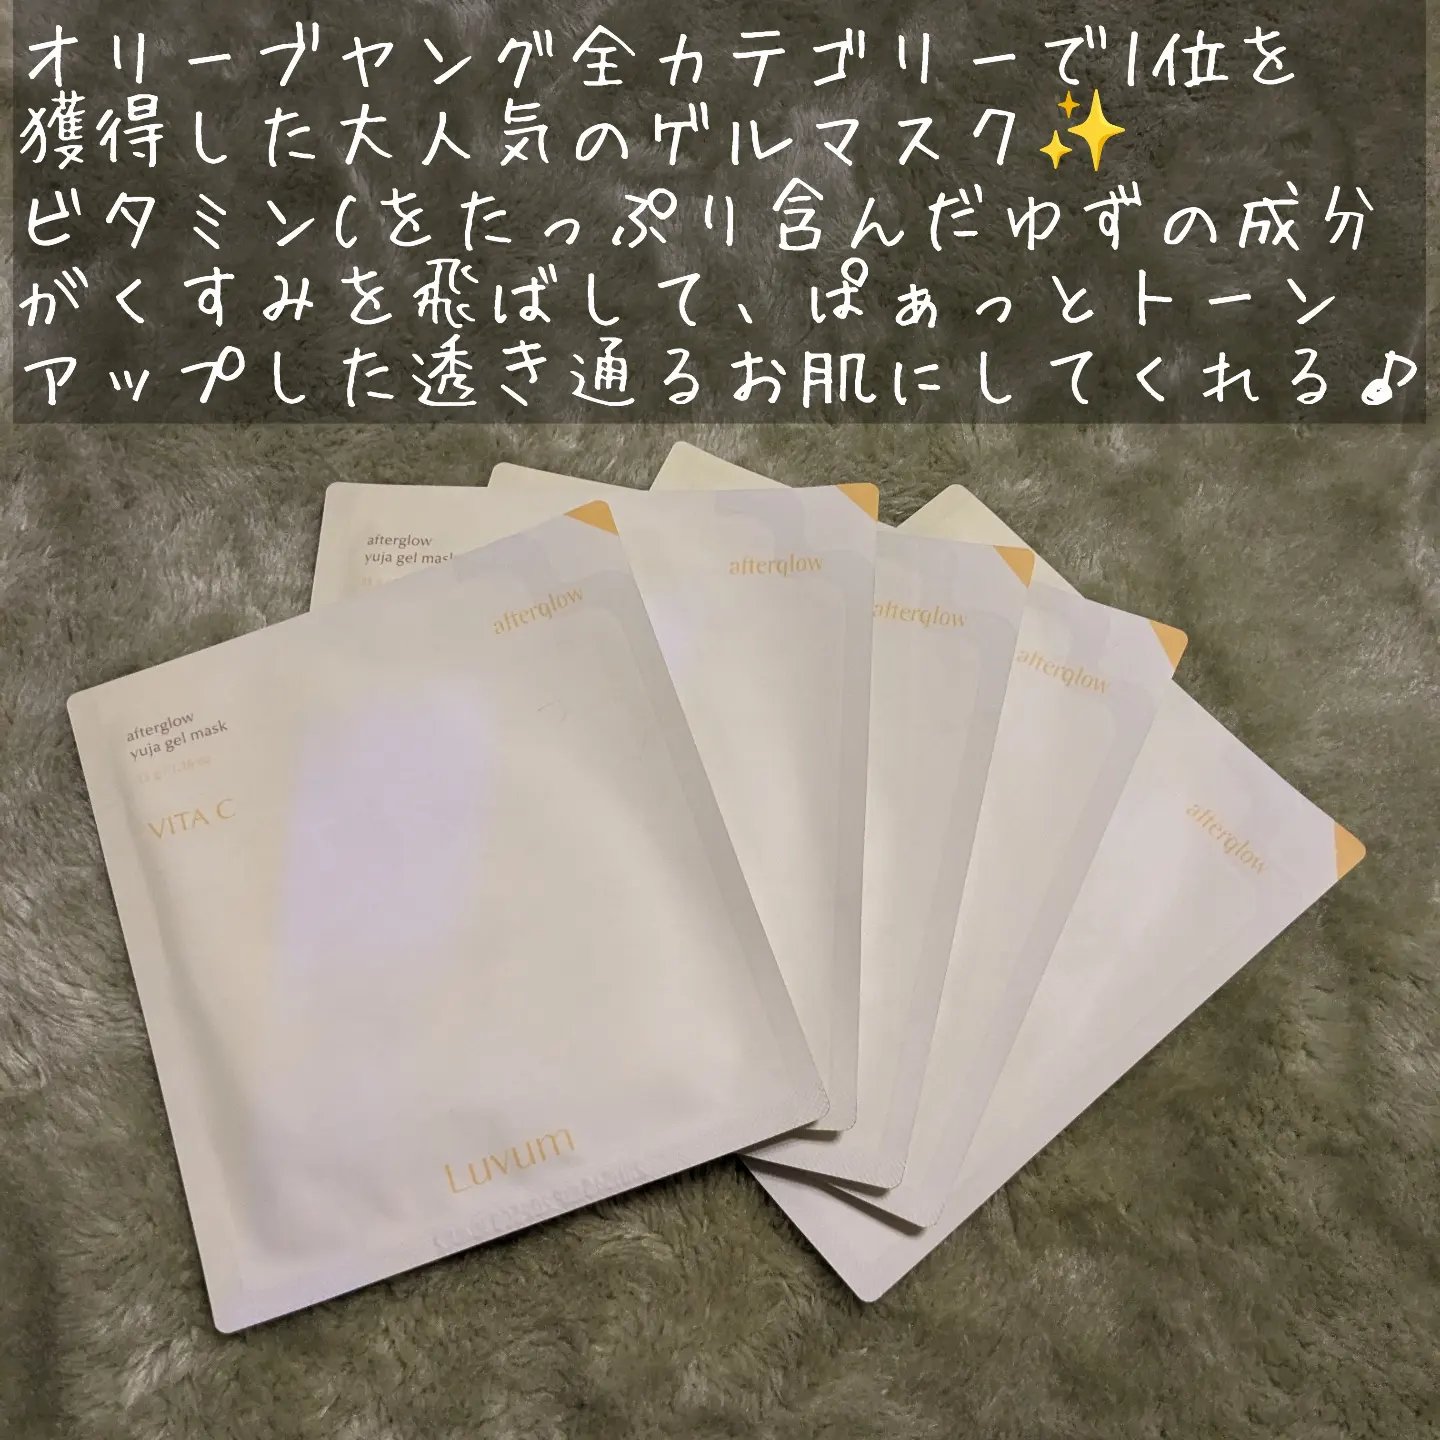 オリーブヤング全カテゴリーで1位を
獲得した大人気のゲルマスク✨
ビタミンCをたっぷり含んだゆずの成分
がくすみを飛ばして、ぱぁっとトーン
アップした透き通るお肌にしてくれる♪
afterglow
yuja gel mask
afterglow
afterglow
afterglow
afterglow
afterglow
yuja gel mask
VITA C
afterglow
Luvum